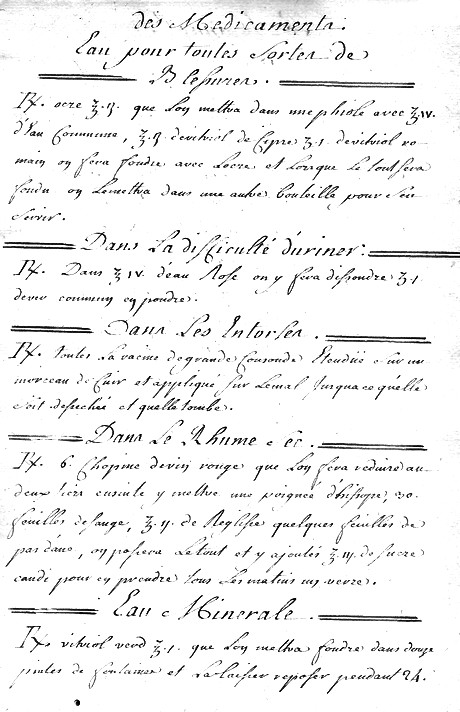 des Medicaments.
Eau pour toutes Sortes de
Blesures.
R. ocre ʒ.ij. que lon mettra dans une phiole avec ʒ.iv.
d'Eau Commune, ʒ.ij. de vitriol de Cipre ʒ.1. de vitriol ro-
main on fera fondre avec Locre et Lorsque le tout sera
fondu on Le mettra dans une autre bouteille pour sen
servir.
Dans La difficulté d'uriner.
R. Dans ʒ iv. d'eau Rose on y fera dissoudre ʒ.1.
de commun en poudre.
Dans Les Entorses.
R. toutes La racine de grande Consoude Etendüe sur un
morceau de Cuir et appliqué sur Le mal Jusqua ce quelle
soit desechée et quelle tombe.
Dans Le Rhume &c.
R. 6. Chopine de vin rouge que Lon fera reduire au
deux tiers ensuite y mettre une poignée d'hisope, 30.
feuilles de sauge, ʒ.ij. de Reglisse quelques feuilles de
pas dane, on Le tout et y ajoutés ʒ.iij. de sucre
candi pour en prendre tous Les matins un verre.
Eau Minerale.
R. vitriol verd ʒ.1. que Lon mettra fondre dans douze
pintes de fontaine et La laisser reposer pendant 24.